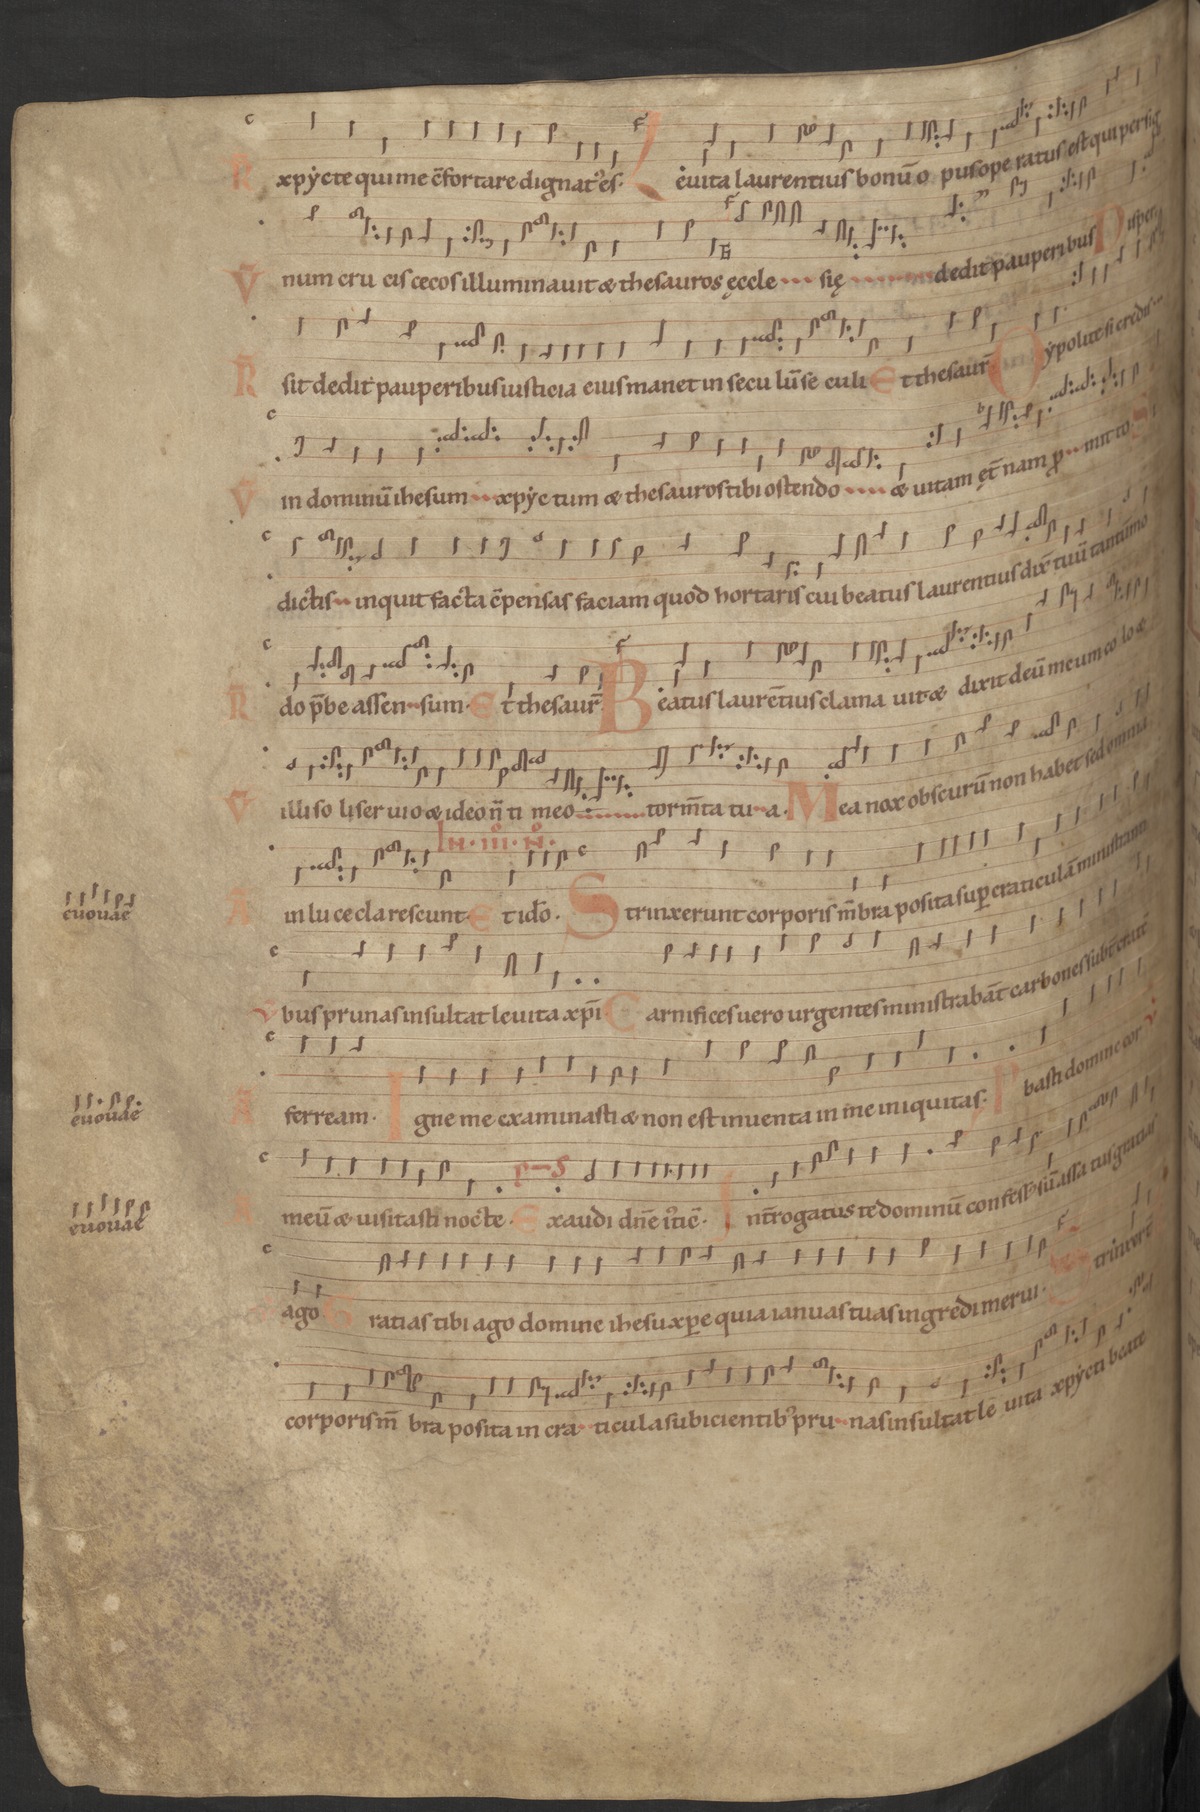 R xpýcte qui me c̄fortare dignat᾽ es. Léuita laurentius bonū opus operatus est qui per sig
V̄ num crucis cecos illuminauit & thesauros ęcclesię dedit pauperibus Disper
R̄ sit dedit pauperibus iusticia eius manet in seculū seculi Et thesaur̄ Ypolite si credis
V̄ in dominū ihesum xpýctum & thesauros tibi ostendo & uitam ęt̄nam p̄mitto
dictis inquit facta c̄pensas faciam quod hortaris cui beatus laurentius dix̄ tuū tantūmo
R̄ do p̄be assensum. Et thesaur̄ Beatus laurēntius clamauit & dixit deū meum colo &
V̄ illi soli seruio & ideo n̄ ti meo torm̄ta tua. Mea nox obscurū non habet sed omnia
IN. III. N̊.
euouae A in luce clarescunt Et ido̅. Strinxerunt corporis m̄bra posita sup craticulā ministranti
bus prunas insultat leuita xp̄i Carnifices uero urgentes ministrabāt carbones subt̄ cratē
euouae A ferream. Igne me examinasti & non est inuenta in me iniquitas. P basti domine cor
euouae A meū & uisitasti nocte. Exaudi dn̄e iticiē. Int̄rogatus te dominū confess᾽ sū assatus gracias
ago. Gratias tibi ago domine ihesu xpe quia ianuas tuas ingredi merui. Strinxerūt
corporis m̄bra posita in craticula subicientib᾽ prunas insultat leuita xpýcti beate